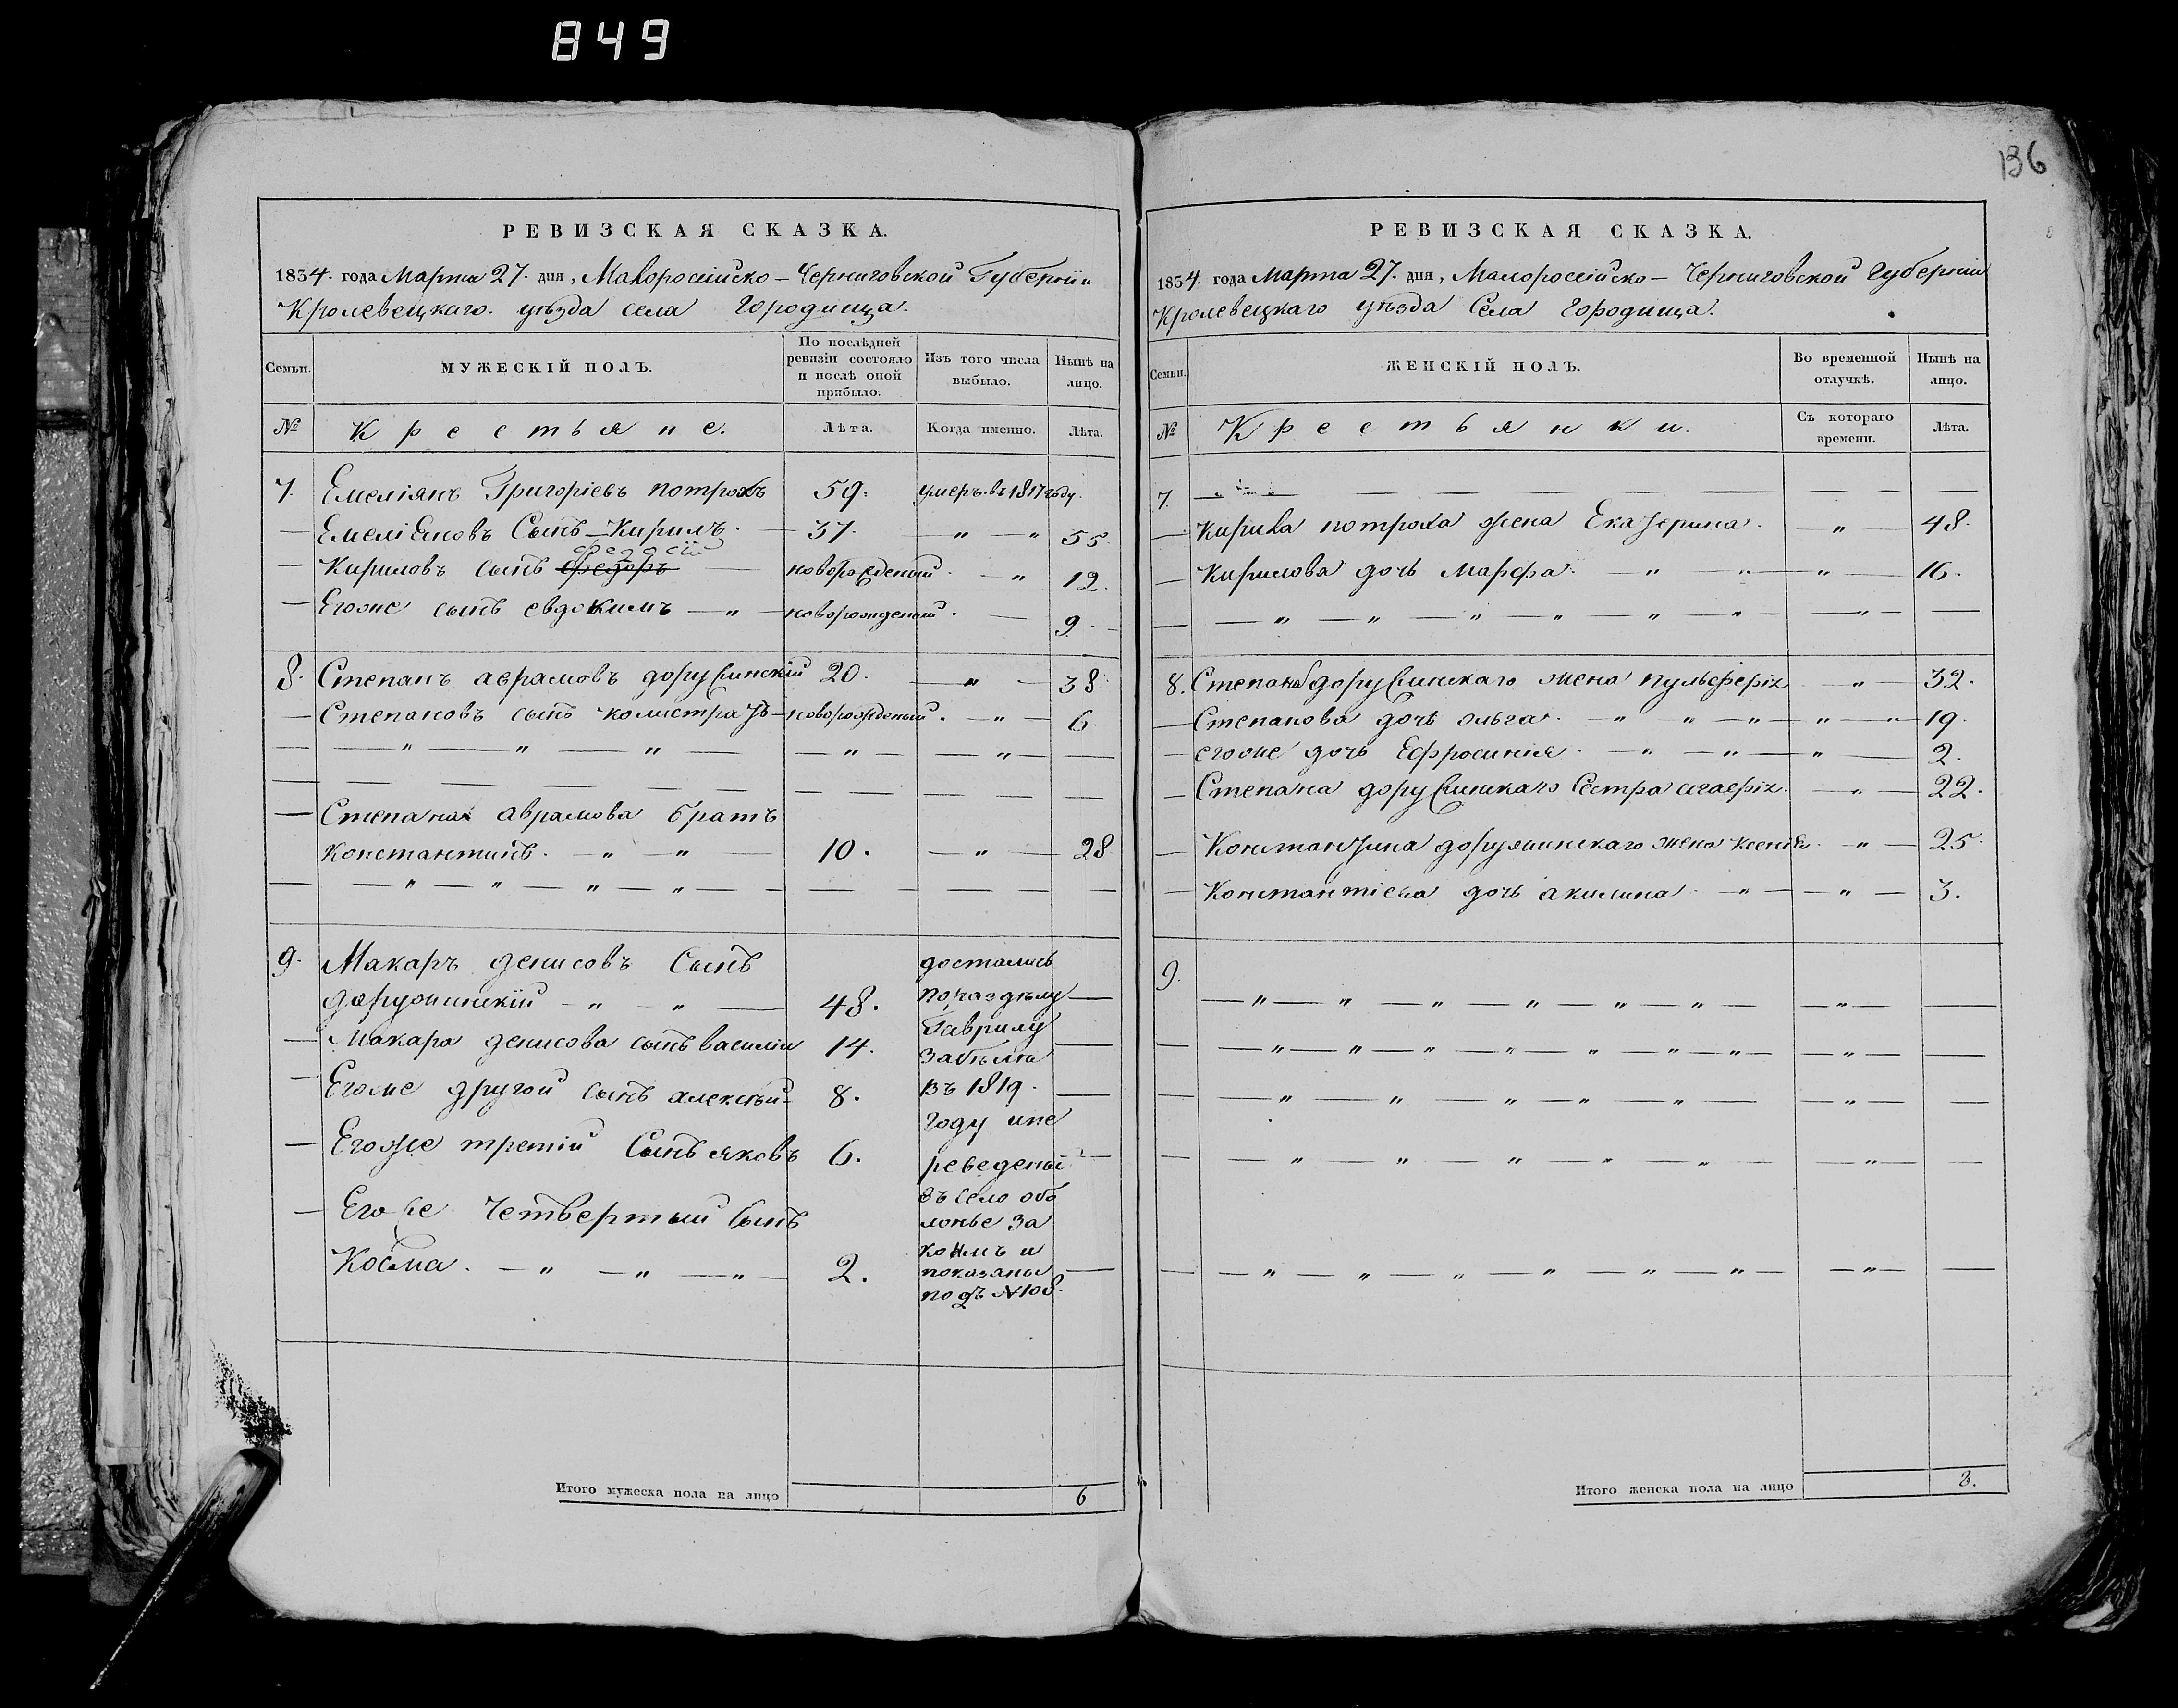 849
136
РЕВИЗСКАЯ СКАЗКА.
1834. года Марта 27. дня, Малоросійско – Черниговской Губерніи
Кролевецкаго. уѣзда села Городища.
Семьи. МУЖЕСКІЙ ПОЛЪ. По послѣдней ревизіи состояло и послѣ оной прибыло. Изъ того числа выбыло. Нынѣ на лицо.
№ Крестьяне. Лѣта. Когда именно. Лѣта.
7. Емеліянъ Григоріевъ потрохъ 59. умеръ въ 1817 году.
— Емеліеновъ Сынъ – Кирилъ. — 37. — " — " 55.
ѳедосій
— Кириловъ сынъ ~~Федоръ~~ — новорожденый. — " 12.
— Егоже сынъ евдокимъ — " — новорожденый. — 9.
8. Степанъ аврамовъ дорушинскій 20. — " — 38.
— Степановъ сынъ калистратъ – новорожденый. — " — 6.
— — " — " — " — — " — — " — —
— Степана аврамова братъ
Константинъ. — " — " — 10. — " — 28
— — " — " — " — " — — — —
9. Макаръ денисовъ Сынъ
доружинскій — " — " — 48.
— Макара денисова сынъ василій 14.
— Егоже другой сынъ алексѣй – 8.
— Егоже третій Сынъ яковъ 6.
— Егоже Четвертый Сынъ
Косма. — " — " — " — 2.
достались
поразделу
Гаврилу
Забѣлѣ
въ 1819.
году ипе
реведены
въ село обо
лонье за
коимъ и
показаны
подъ №108.
Итого мужеска пола на лицо 6
РЕВИЗСКАЯ СКАЗКА.
1834. года Марта 27. дня, Малоросійско – Черниговской Губерніи
Кролевецкаго уѣзда Села Городища.
Семьи. ЖЕНСКІЙ ПОЛЪ. Во временной отлучкѣ. Нынѣ на лицо.
№ Крестьянки. Съ котораго времени. Лѣта.
7. — — — — — — — —
— Кирила потроха жена Екатерина. — " — 48.
— Кирилова дочь Марфа. — " — " — " — 16.
— — " — " — " — " — " — " — " — —
8. Степана дорушинскаго жена пульхерія — " — 32.
— Степанова дочь ольга. — " — " — " — " — " — 19.
— егоже дочь Ефросинія. — " — " — " — 2.
— Степана дорушинскаго Сестра — " — 22.
— Константина доружинскаго жена Ксенія. — " — 25.
— Константіева дочь акилина. — " — " — 3.
9. — " — " — " — " — " — " — " — —
— — " — " — " — " — " — " — " — " — —
— — " — " — " — " — " — " — —
— — " — " — " — " — " — " — —
— — " — " — " — " — " — " — " — —
Итого женска пола на лицо 8.